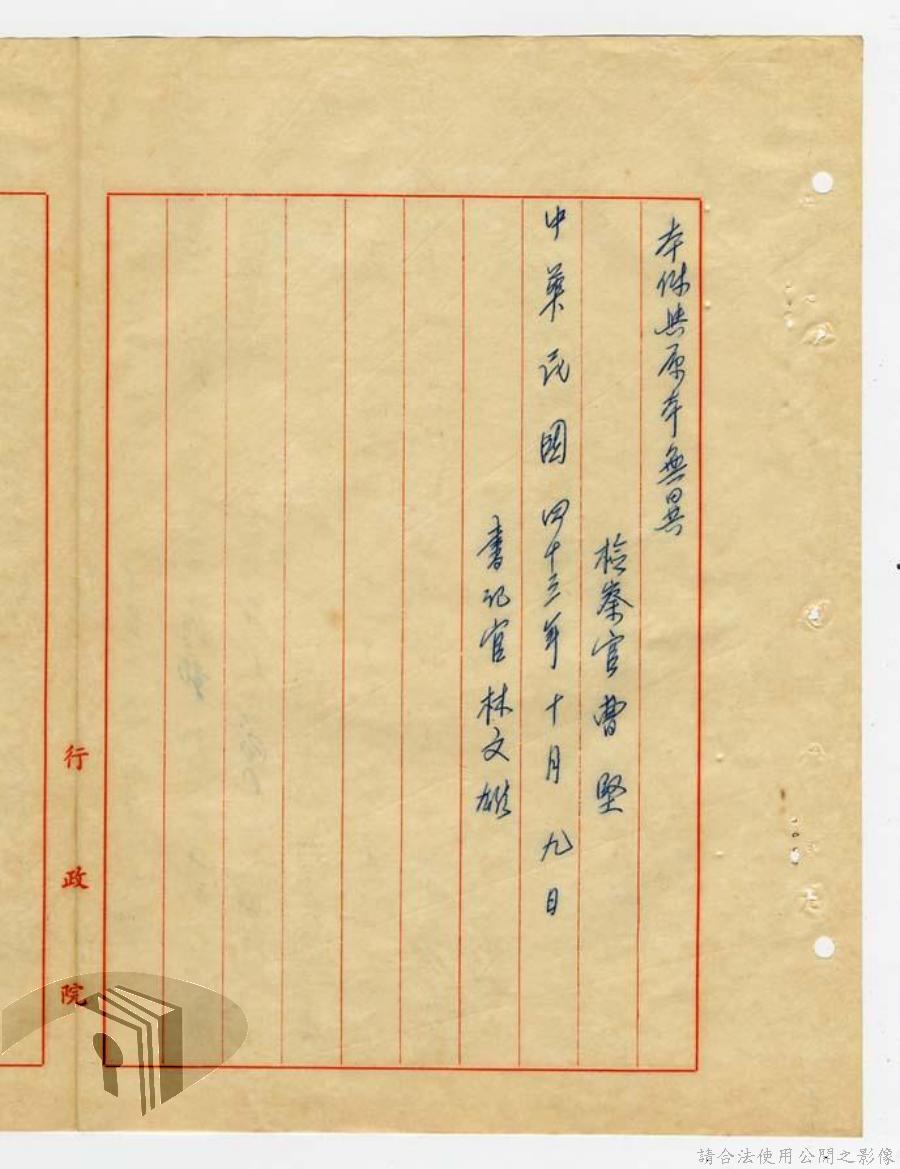 本件與原本無異
檢察官曹堅
中華民國四十三年十月九日
書記官林文雄
行政院
請合法使用公開之影像